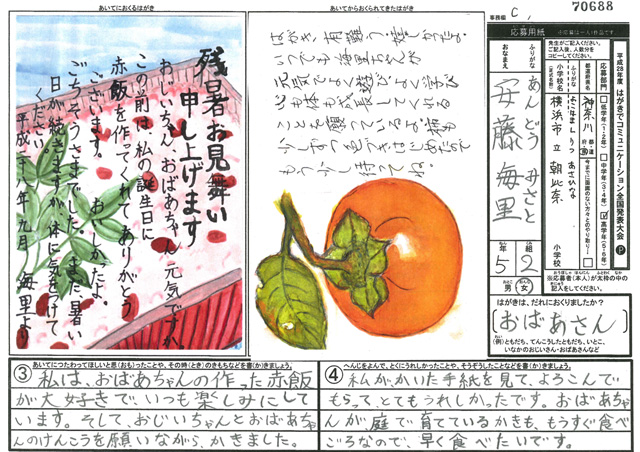 あいてにおくるはがき
残暑お見舞い
申し上げます
おじいちゃん、おばあちゃん元気ですか。
この前は、私の誕生日に
赤飯を作ってくれてありがとう
ございます。おいしかったよ。
ごちそうさまでした。まだ暑い
日が続きますが、体に気をつけて
ください。
平成二十八年九月 海里より
あいてからおくられてきたはがき
はがき、有難う。
いつでも海里ちゃんが
元気でよく遊びよく学び
心も体も成長してくれる
ことを願っているよ。柿も
もう少し待っててね。
事務欄
C
70688
平成28年度 はがきでコミュニケーション全国発表大会
応募用紙
※応募は一人1作品です
先生がご記入ください。
ご記入後、人数分を
コピーしてください。
応募部門
低学年(1・2年)
中学年(3・4年)
高学年(5・6年)
都道府県名
神奈川
都・道
府・県
今までに面識のない方々とのやり取り
ふりがな
小学校名
(正式名称)
よこはましりつ あさひな
横浜市立 朝比奈
小学校
ふりがな
おなまえ
あんどう みさと
安藤 海里
年 5
組 2
男
女
※応募者(本人)が太枠の中の
記入をしてください。
はがきは、だれにおくりましたか?
おばあさん
(例)ともだち、てんこうしたともだち、いとこ、
いなかのおじいさん・おばあさんなど
③ あいてにつたわってほしいと思(おも)ったことや、その時(とき)のきもちなどを書(か)きましょう。
私は、おばあちゃんの作った赤飯
が大好きで、いつも楽しみにして
います。そして、おじいちゃんとおばあちゃ
んのけんこうを願いながら、かきました。
④ へんじをよんで、とくにうれしかったことや、そうぞうしたことなどを書(か)きましょう。
私がかいた手紙を見て、よろこんで
もらって、とてもうれしかったです。おばあちゃ
んが、庭で育てているかきも、もうすぐ食べ
ごろなので、早く食べたいです。